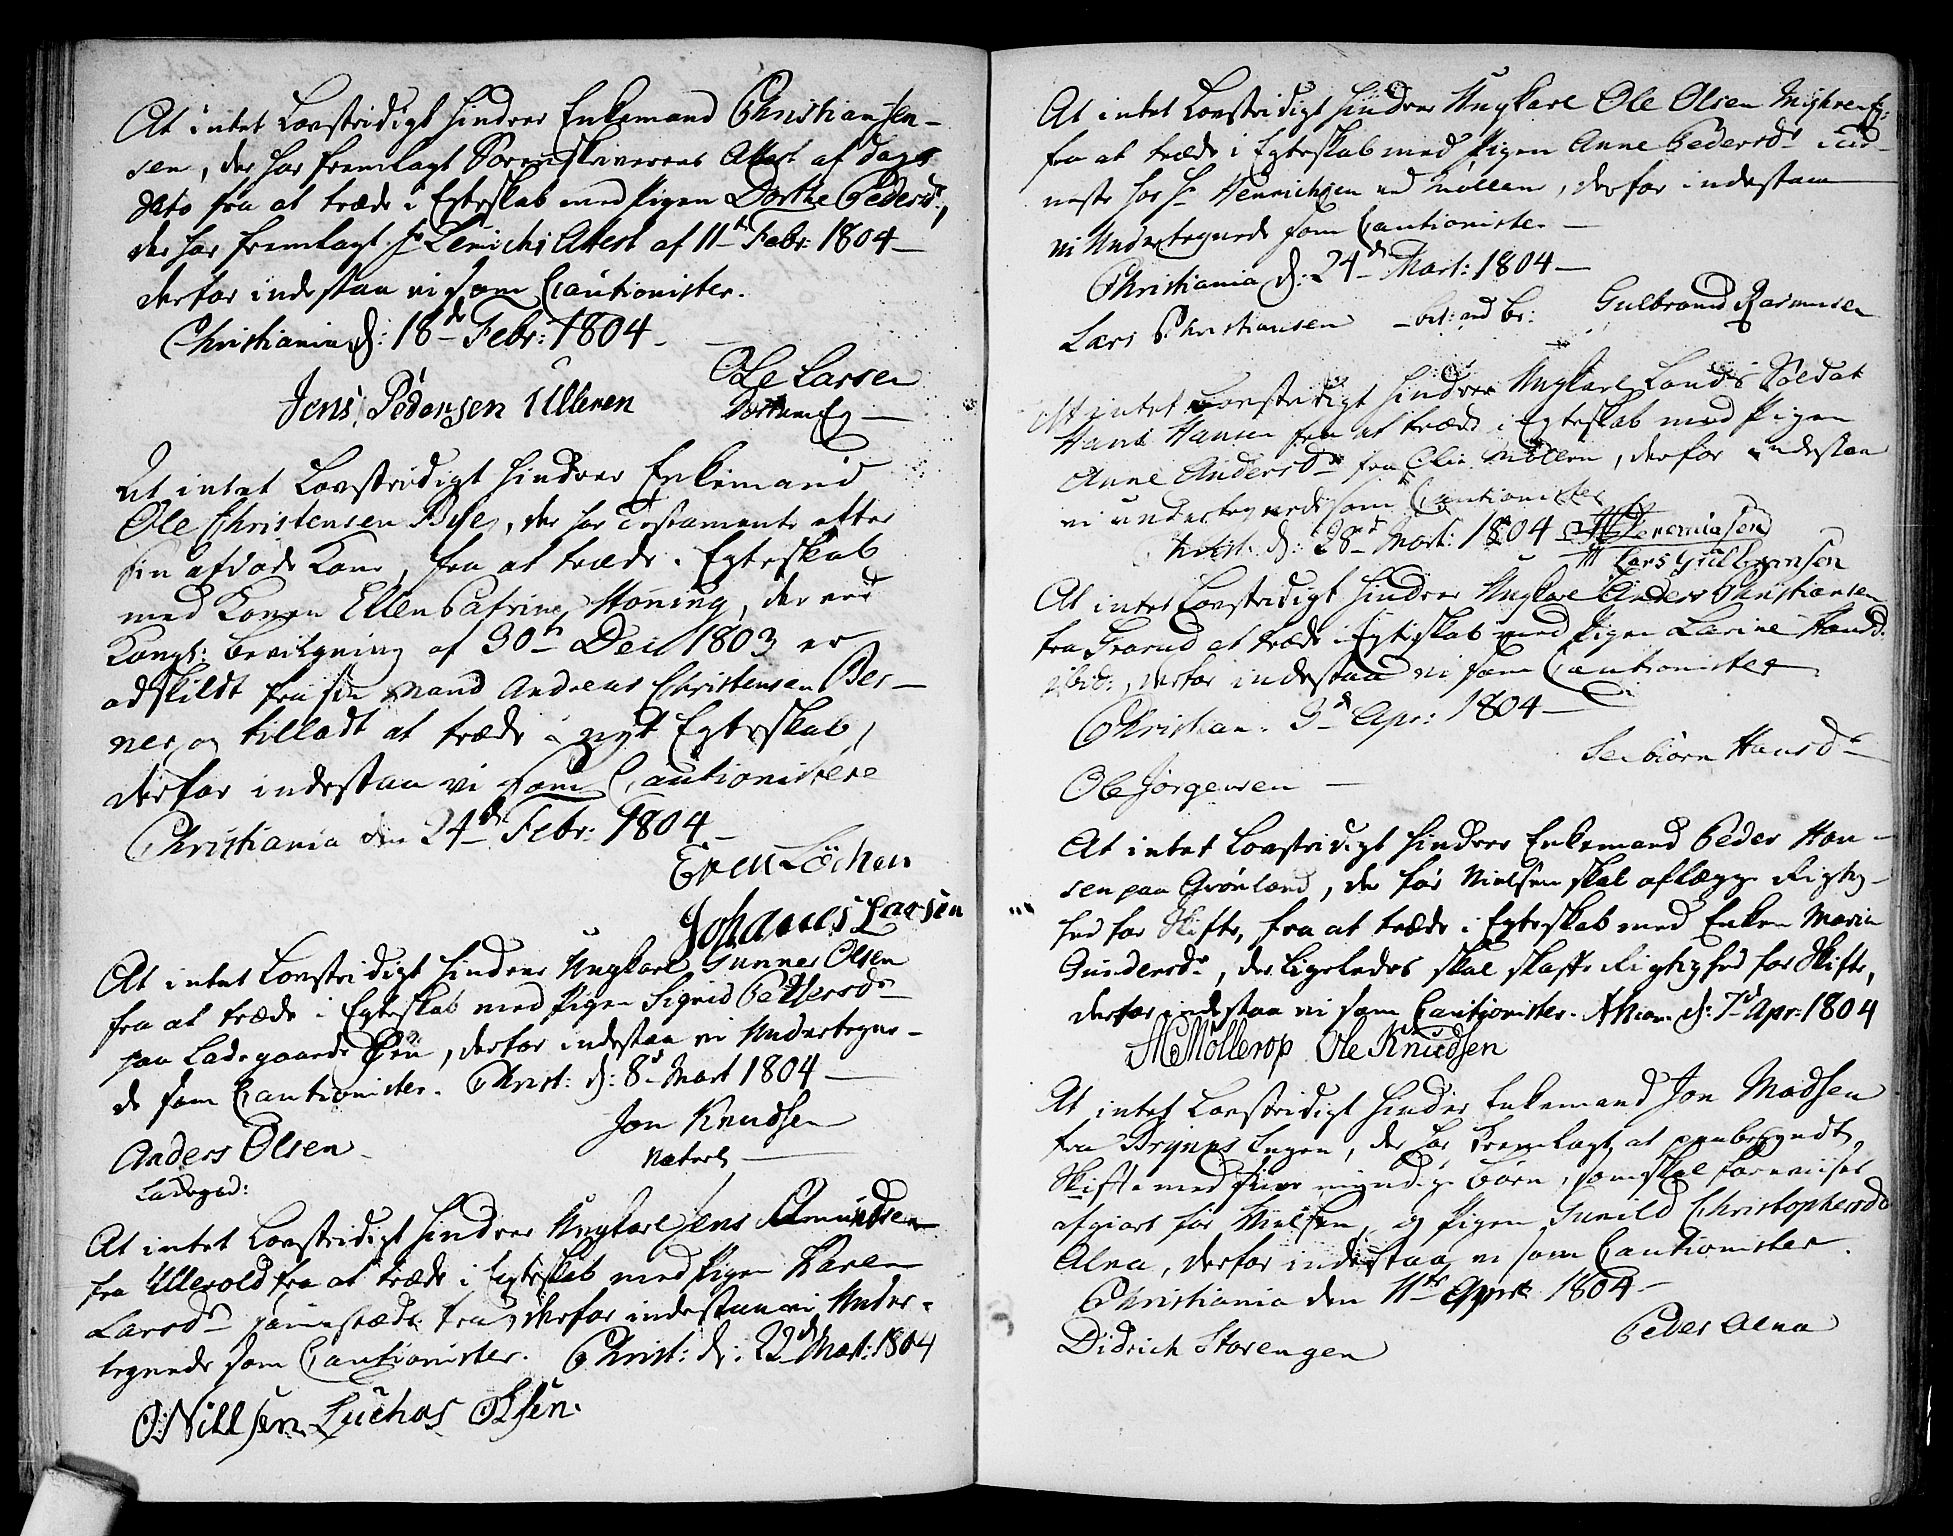 At intet Lovstridigt hindrer Enkemand Christian Jen-
sen, der har fremlagt Sorenskriverens Attest af dags
dato fra at træde i Egteskab med Pigen Dorthe Pedersd:,
der har fremlagt Hr Lemichs Attest af 11te Febr: 1804 —
derfor indestaa vi som Cautionister.
Christiania d: 18de Febr: 1804.
Ole Larsen
Jens Pedersen Ulleren
At intet Lovstridigt hindrer Enkemand
Ole Christensen Bye, der har Testamente efter
sin afdøde Kone, fra at træde i Egteskab
med Konen Ellen Catrine Høning, der ved
Kongl: Bevilgning af 30te Dec 1803 er
adskildt fra sin Mand Andreas Christensen Ber-
ner, og tilladt at træde i nyt Egteskab,
derfor indestaa vi som Cautionistere
Christiania den 24de Febr: 1804 —
Even Löchen
Johanes Larsen
At intet Lovstridigt hindrer Ungkarl Gunner Olsen
fra at træde i Egteskab med Pigen Sigrid Pettersdr
paa Ladegaards Øen, derfor indestaa vi Undertegne-
de som Cautionister. Christ: d: 8de Mart 1804 —
Jon Knudsen
Anders Olsen
Ladegd:
At intet Lovstridigt hindrer Ungkarl Jens Amundsen
fra Ullevold fra at træde i Egteskab med Pigen Karen
Larsdr sammestæds fra, derfor indestaa vi Under-
tegnede som Cautionister. Christ: d: 22de Mart: 1804
O: Nillsen Luchas Olsen.
At intet Lovstridigt hindrer Ungkarl Ole Olsen
fra at træde i Egteskab med Pigen Anne Pedersdr
neste hos Hr Henrichsen ved Møllen, derfor indestaa
vi Undertegnede som Cautionister —
Christiania d: 24de Mart: 1804 —
Lars Christiansen Gulbrand Rasmusen
At intet Lovstridigt hindrer Ungkarl Lands Soldat
Hans Hansen fra at træde i Egteskab med Pigen
Anne Andersdr fra Møllen, derfor indestaa
vi undertegnede som Cautionister
Christ. d: 28de Mart: 1804 Jeremiasen
Lars Gulbransen
At intet Lovstridigt hindrer Ungkarl Anders Christiansen
fra at træde i Egteskab med Pigen Larine Hansd.
ibid:, derfor indestaa vi som Cautionister
Christian. 3de Apr: 1804 —
Seibiörn Hansdr
Ole Jörgensen —
At intet Lovstridigt hindrer Enkemand Peder Han-
sen paa Grønland, der før Vielsen skal aflægge Rigtig-
hed for Skifte, fra at træde i Egteskab med Enken Maria
Gundersdr, der ligeledes skal skaffe Rigtighed for Skifte,
derfor indestaa vi som Cautionister. Xtian. d: 7de Apr: 1804
Möllerop Ole Knudsen
At intet Lovstridigt hindrer Enkemand Jon Madsen
fra Bryns Engen, der har fremlagt at paabegyndt
Skifte med sine myndige Børn, som skal foreviises
afgiort før Vielsen, og Pigen Gunild Christophersdr
Alna, derfor indestaa vi som Cautionister.
Christiania den 11te April 1804 —
Peder Alna
Didrich Storengen